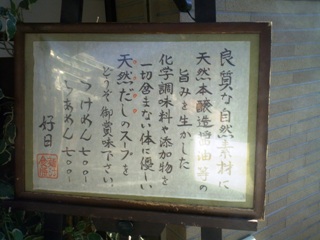 良質な自然素材に
天然本醸造醤油等の
旨みを生かした
化学調味料や添加物を
一切含まない体に優しい
天然だしのスープを
どうぞ御賞味下さい
つけめん 七〇〇
らあめん 七〇〇
好日